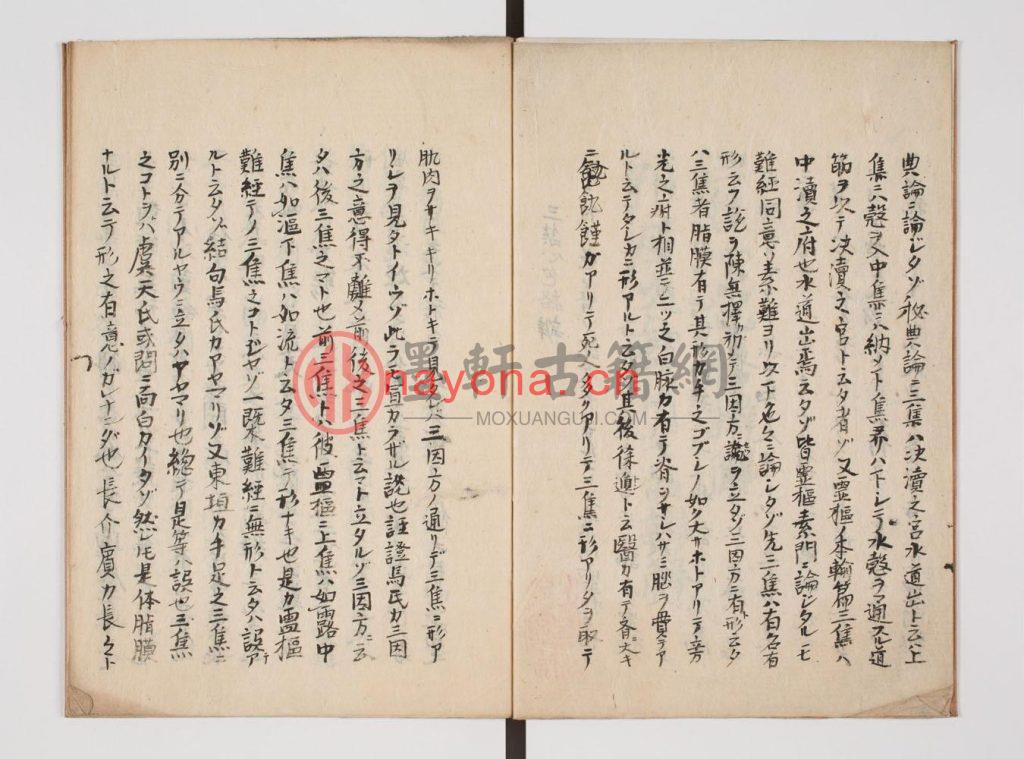 典論ニ論シタゾ秘典論ニ三焦ハ决瀆之宮水道出ト云ハ上
焦ニハ穀ヲ又中焦ニハ納ント焦界ハトシテ水穀ヲマ通スル道
筋ヲ以テ决瀆之宮ト云タ者ゾ又靈樞ノ本輸篇三焦ハ
中瀆之府也水道出焉云タゾ皆靈樞素門ニ論シタルモ
難經同意ソ素難ヨリ以下色々ニ論シタゾ先三焦ハ有名有
形云フ説ヲ陳無擇初テ三因方ニ説ヲ立タゾ三因方ニ有形云タ
ハ三焦者脂膜有テ其形カ手之コブシノ如ク大サホトアリテ旁
光之府ト相並テ二ツ之白脉カ有テ脊ヲサシハサミ腦ヲ貫テア
ルト云テタシカニ形アルト云タゾ其後徐遁ト云醫カ有テ斉ニ大キ
ニ飢饉ガアリテ死人多クアリテ三焦ニ形アリタヲ取テ
肌肉ヲサキキリホトキテ見タレバ三因方ノ通リデ三焦ニ形ア
リシヲ見タトイウゾ此ラハ皆カラサル說也註證馬氏カ三因
方之意得不離メ前後之三焦ト云マト立タルゾ三因方ニ云
タハ後三焦之マト也前三焦トハ彼靈樞ニ上焦ハ如露中
焦ハ如漚下焦ハ如流ト云タ三焦テ形ナキ也是カ靈樞
難經テノ三焦之コトヂヤゾ一既難經ニ無形ト云タハ誤テア
ルト云タゾ結句馬氏カアヤマリゾ又東垣カ手足之三焦ニ
別ニ分テアルヤウニ立タハアヤマリ也總テ是等ハ誤也三焦
之コトヲバ虞天氏或問ニ面白カイタゾ然レ𪜈是体脂膜
ナルト云テ形之有意ノガレナンダ也長介賓カ長クト
墨軒古籍網
nayona.cn
MOXUANGUJI.COM